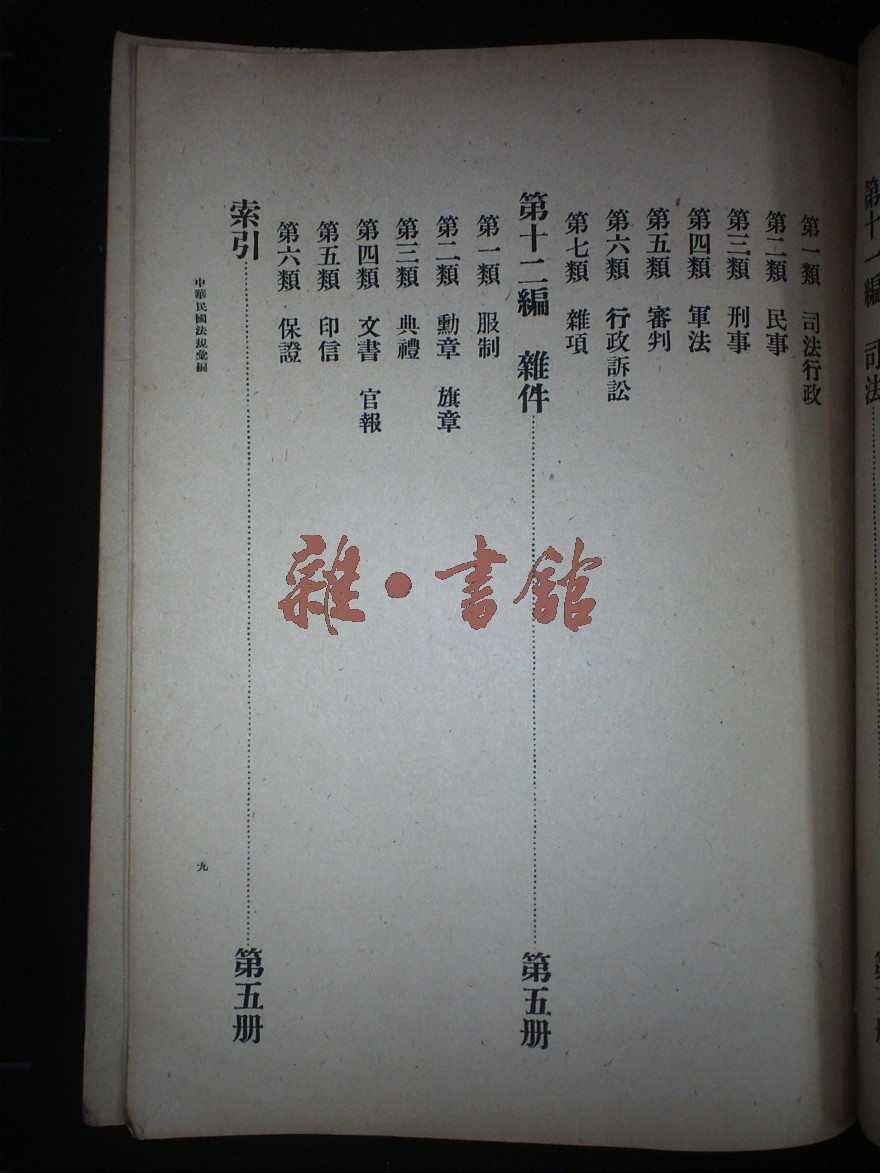 第十一編 司法
第一類 司法行政
第二類 民事
第三類 刑事
第四類 軍法
第五類 審判
第六類 行政訴訟
第七類 雜項
第十二編 雜件 第五册
第一類 服制
第二類 勳章 旗章
第三類 典禮
第四類 文書 官報
第五類 印信
第六類 保證
索引 第五册
中華民國法規彙編
九
雜·書館